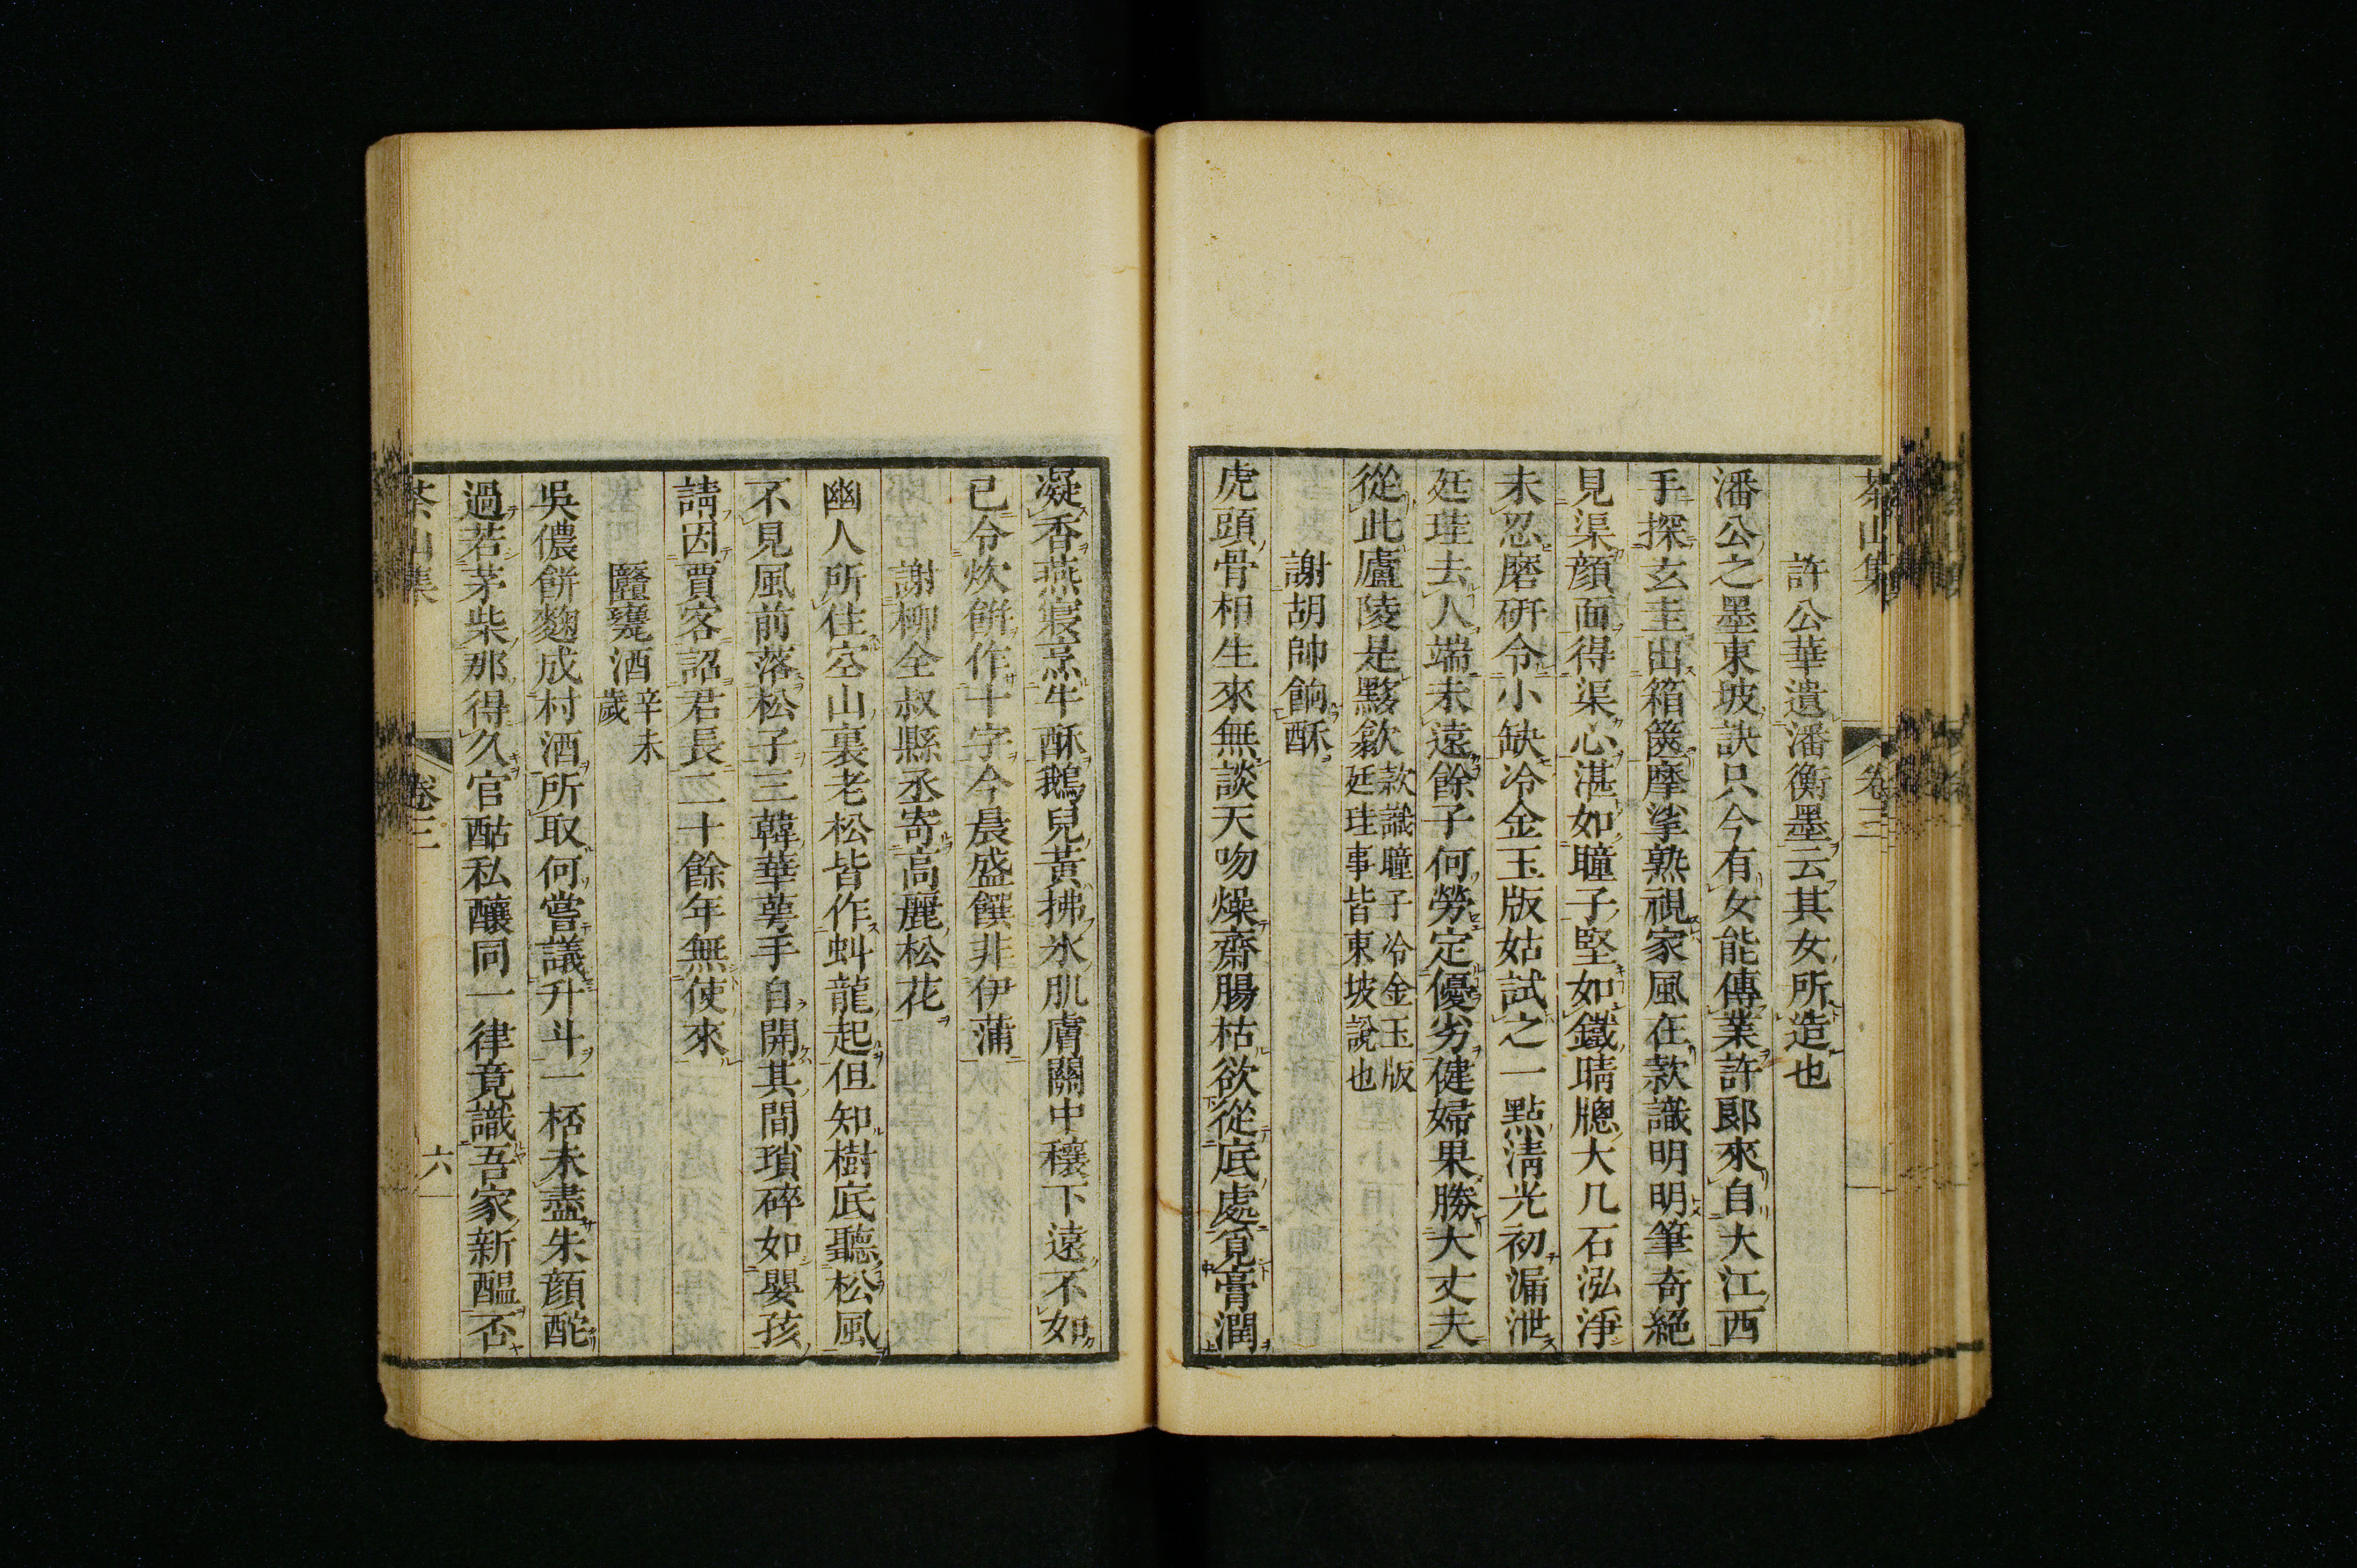 茶山集 卷三
許公華遺潘衡墨云其女所造也
潘公之墨東坡訣只今有女能傳業許郞來自大江西
手探玄圭出箱篋摩挲熟視家風在款識明明筆奇絕
見渠顏面得渠心湛如瞳子堅如鐵晴牕大几石泓淨
未忍磨硏令小缺冷金玉版姑試之一點淸光初漏泄
廷珪去人端未遠餘子何勞定優劣健婦果勝大丈夫
從此廬陵是黟歙款識瞳子冷金玉版
廷珪事皆東坡說也
謝胡帥餉酥
虎頭骨相生來無談天吻燥齋腸枯欲從底處覓膏潤
凝香燕寢烹牛酥鵝兒黃拂氷肌膚關中穰下遠不如
已令炊餠作十字今晨盛饌非伊蒲
謝柳全叔縣丞寄高麗松花
幽人所住空山裏老松皆作虯龍起但知樹底聽松風
不見風前落松子三韓華萼手自開其間瑣碎如嬰孩
請因賈客詔君長二十餘年無使來
醫甕酒辛未
歲
吳儂餠麴成村酒所取何嘗議升斗一桮未盡朱顏酡
過若茅柴那得久官酤私釀同一律竟識吾家新醞否
茶山集 卷三 六